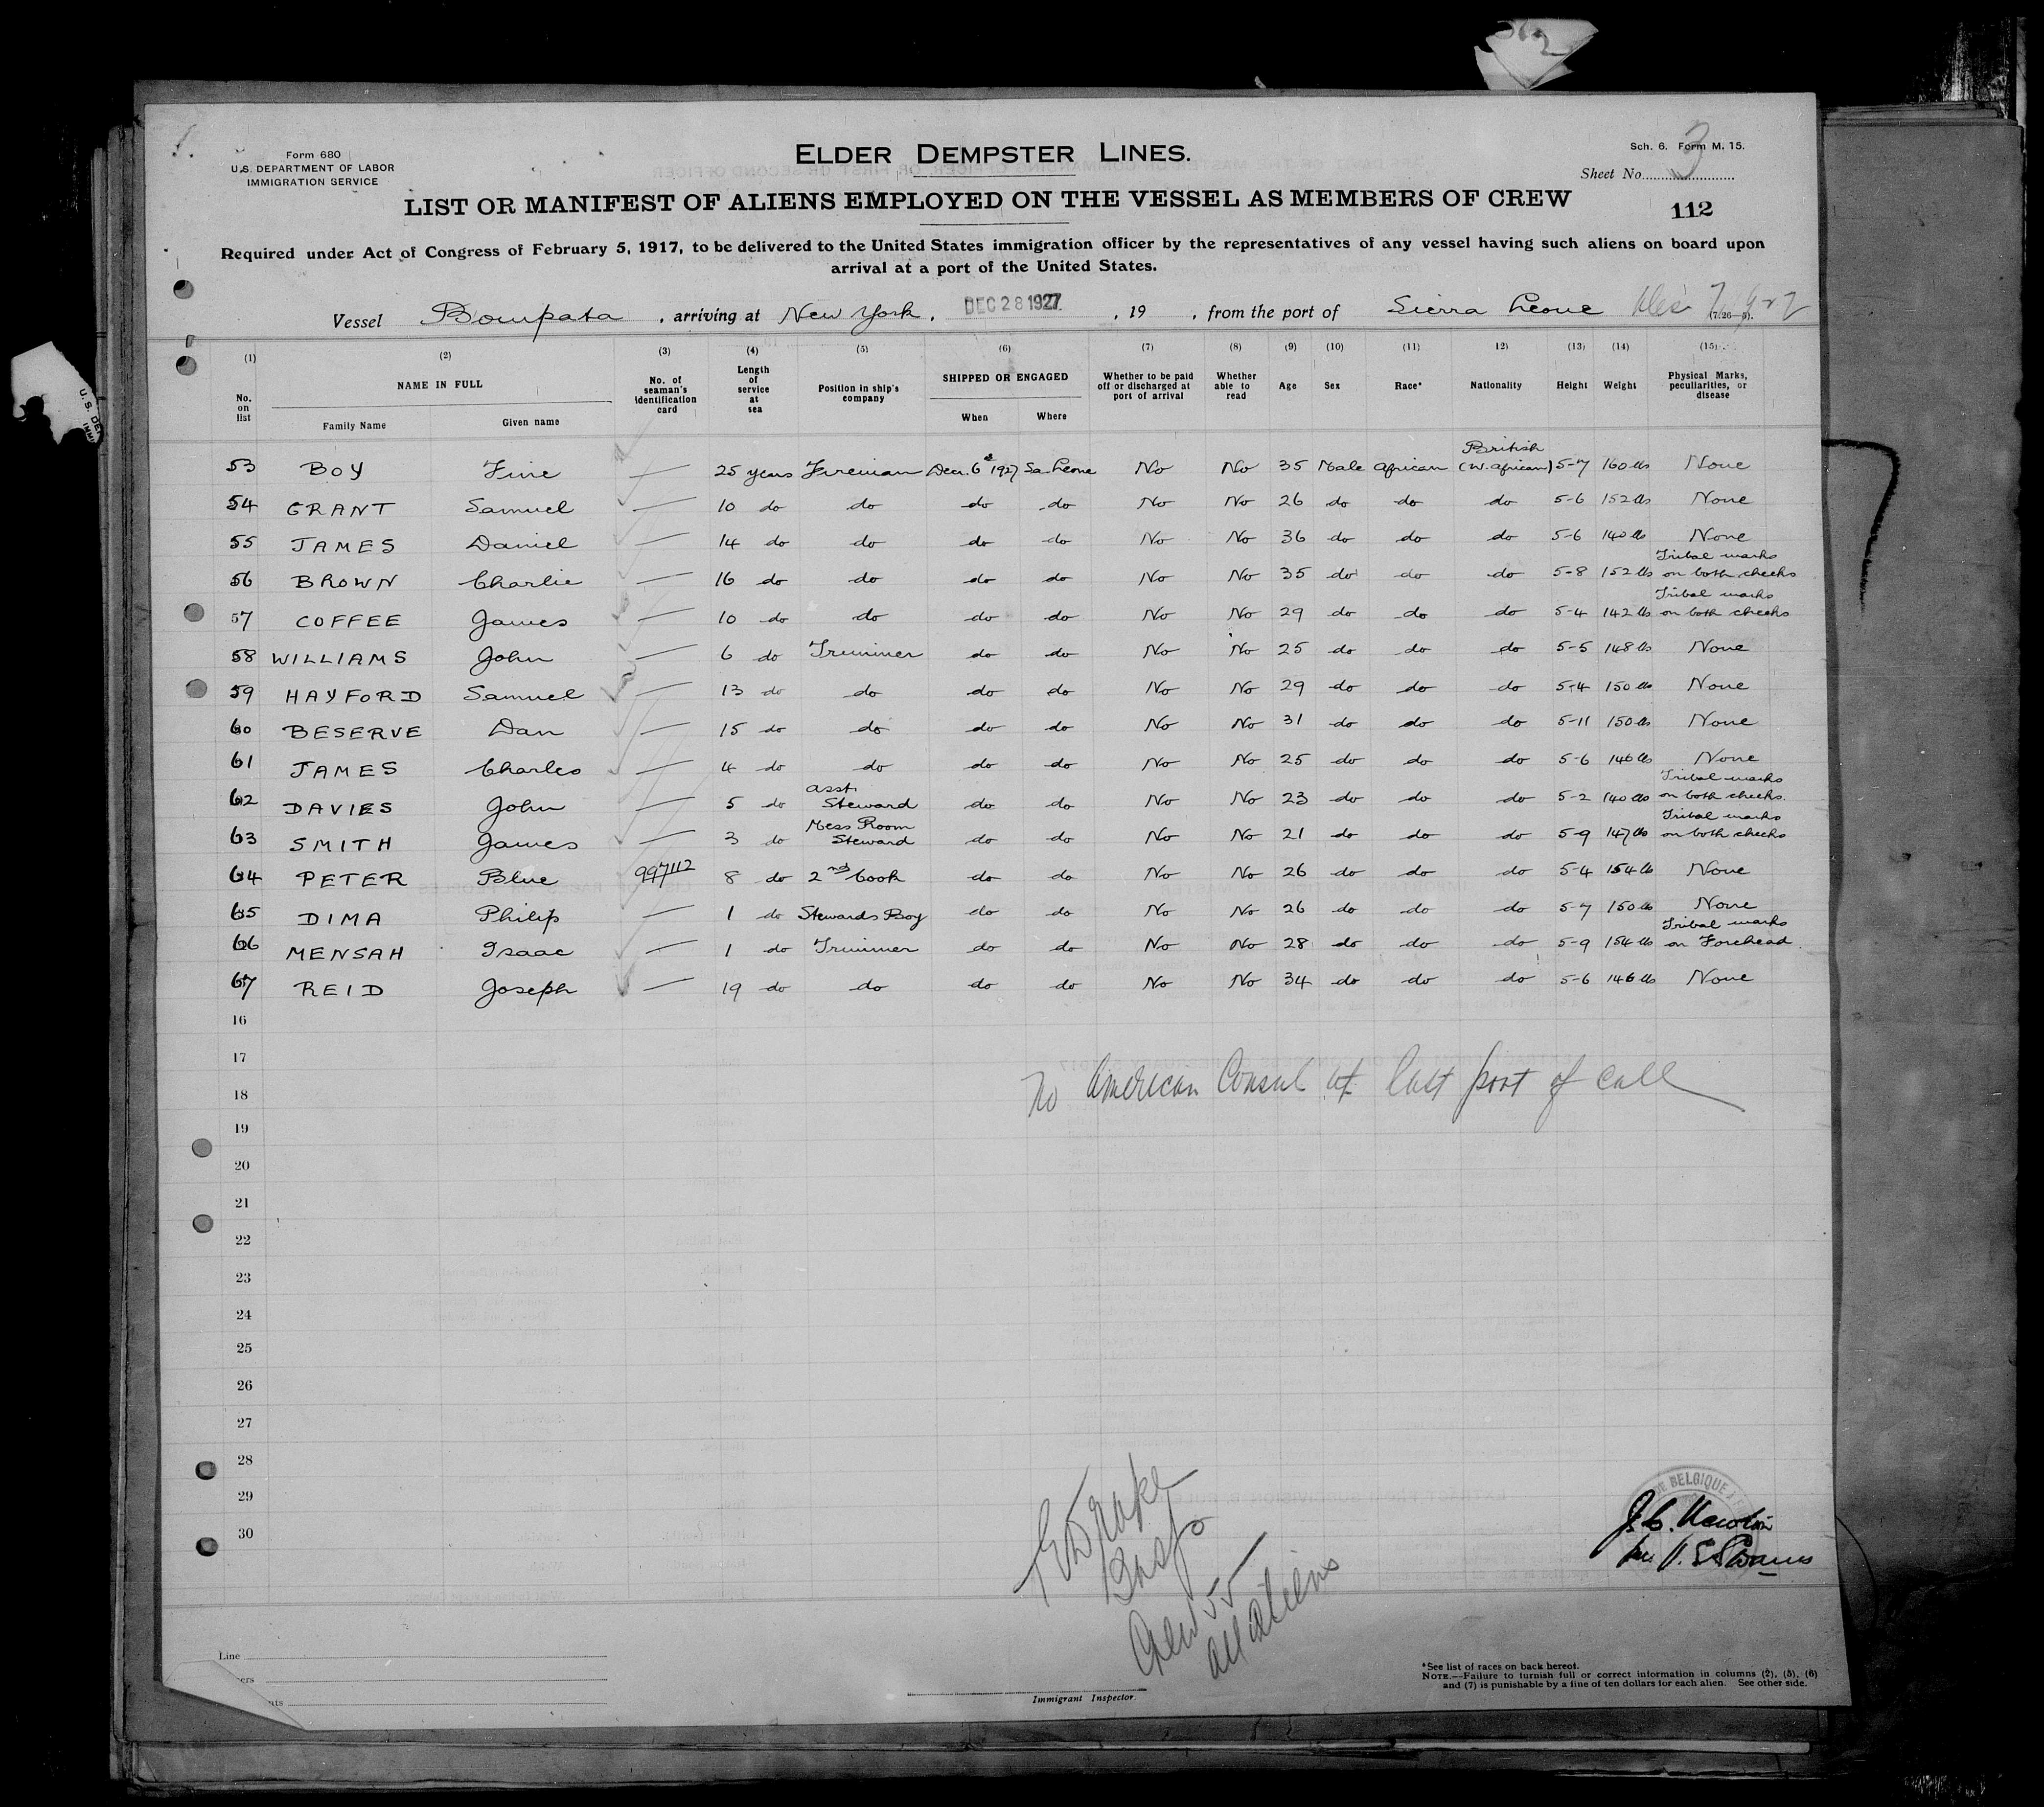 Form 680
U.S. DEPARTMENT OF LABOR
IMMIGRATION SERVICE
ELDER DEMPSTER LINES.
Sch. 6. Form M. 15.
Sheet No. 3
LIST OR MANIFEST OF ALIENS EMPLOYED ON THE VESSEL AS MEMBERS OF CREW
112
Required under Act of Congress of February 5, 1917, to be delivered to the United States immigration officer by the representatives of any vessel having such aliens on board upon
arrival at a port of the United States.
Vessel Bompata, arriving at New York, DEC 28 1927, 19 , from the port of Sierra Leone
(1) (2) (3) (4) (5) (6) (7) (8) (9) (10) (11) 12) (13) (14) (15)
No. on list NAME IN FULL Family Name Given name No. of seaman's identification card Length of service at sea Position in ship's company SHIPPED OR ENGAGED When Where Whether to be paid off or discharged at port of arrival Whether able to read Age Sex Race* Nationality Height Weight Physical Marks, peculiarities, or disease
53 BOY Fine — 25 years Fireman Decr. 6th 1927 Sa. Leone No No 35 Male African British (W. African) 5-7 160 lbs None
54 GRANT Samuel — 10 do do do do No No 26 do do do 5-6 152 lbs None
55 JAMES Daniel — 14 do do do do No No 36 do do do 5-6 140 lbs None
56 BROWN Charlie — 16 do do do do No No 35 do do do 5-8 152 lbs Tribal marks on both cheeks
57 COFFEE James — 10 do do do do No No 29 do do do 5-4 142 lbs Tribal marks on both cheeks
58 WILLIAMS John — 6 do Trimmer do do No No 25 do do do 5-5 148 lbs None
59 HAYFORD Samuel — 13 do do do do No No 29 do do do 5-4 150 lbs None
60 BESERVE Dan — 15 do do do do No No 31 do do do 5-11 150 lbs None
61 JAMES Charles — 4 do do do do No No 25 do do do 5-6 146 lbs None
62 DAVIES John — 5 do asst. Steward do do No No 23 do do do 5-2 140 lbs Tribal marks on both cheeks.
63 SMITH James — 3 do Mess Room Steward do do No No 21 do do do 5-9 147 lbs Tribal marks on both cheeks
64 PETER Blue 997112 8 do 2nd Cook do do No No 26 do do do 5-4 154 lb None
65 DIMA Philip — 1 do Stewards Boy do do No No 26 do do do 5-7 150 lbs None
66 MENSAH Isaac — 1 do Trimmer do do No No 28 do do do 5-9 154 lbs Tribal marks on Forehead.
67 REID Joseph — 19 do do do do No No 34 do do do 5-6 146 lbs None
16
17
No American Consul at last port of call
18
19
20
21
22
23
24
25
26
27
28
29
30
BELGIQUE
Crew 55
all aliens
Line
Immigrant Inspector.
*See list of races on back hereof.
NOTE.—Failure to furnish full or correct information in columns (2), (5), (6)
and (7) is punishable by a fine of ten dollars for each alien. See other side.